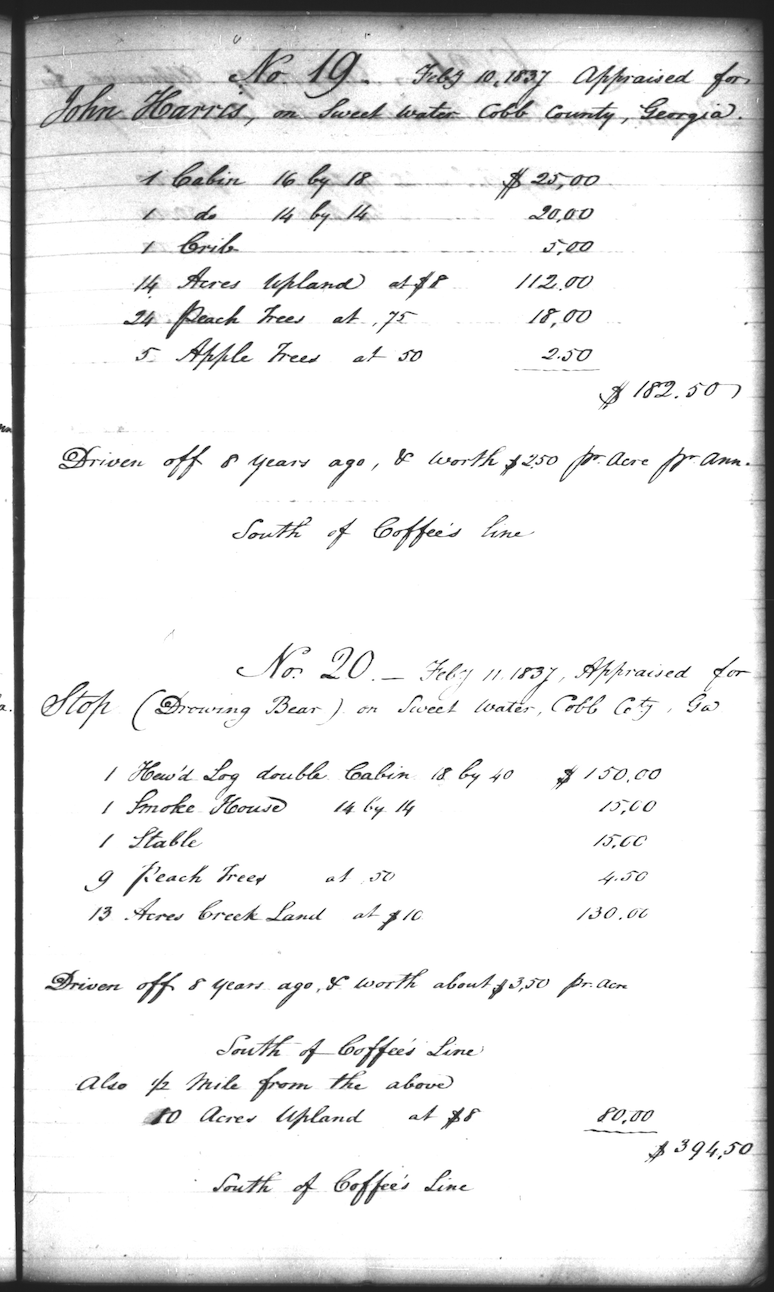 No 19. Feby 10, 1837 Appraised for
John Harris, on Sweet Water Cobb County, Georgia.
1 Cabin 16 by 18 $ 25,00
1 do 14 by 14 20,00
1 Crib 5,00
14 Acres Upland at $8 112.00
24 Peach Trees at ,75 18,00
5 Apple Trees at 50 2.50
$ 182.50
Driven off 8 years ago, & worth $2.50 pr. Acre pr. Ann.
South of Coffee's line
No. 20. — Feby 11. 1837, Appraised for
Stop (Drowing Bear) on Sweet Water, Cobb Coty, Ga
1 Hew'd Log double Cabin 18 by 40 $ 150.00
1 Smoke House 14 by 14 15,00
1 Stable 15,00
9 Peach Trees at 50 4.50
13 Acres Creek Land at $10 130.00
Driven off 8 years ago, & worth about $3,50 pr. Acre
South of Coffee's Line
Also 1/2 Mile from the above
10 Acres Upland at $8 80,00
$ 394,50
South of Coffee's Line